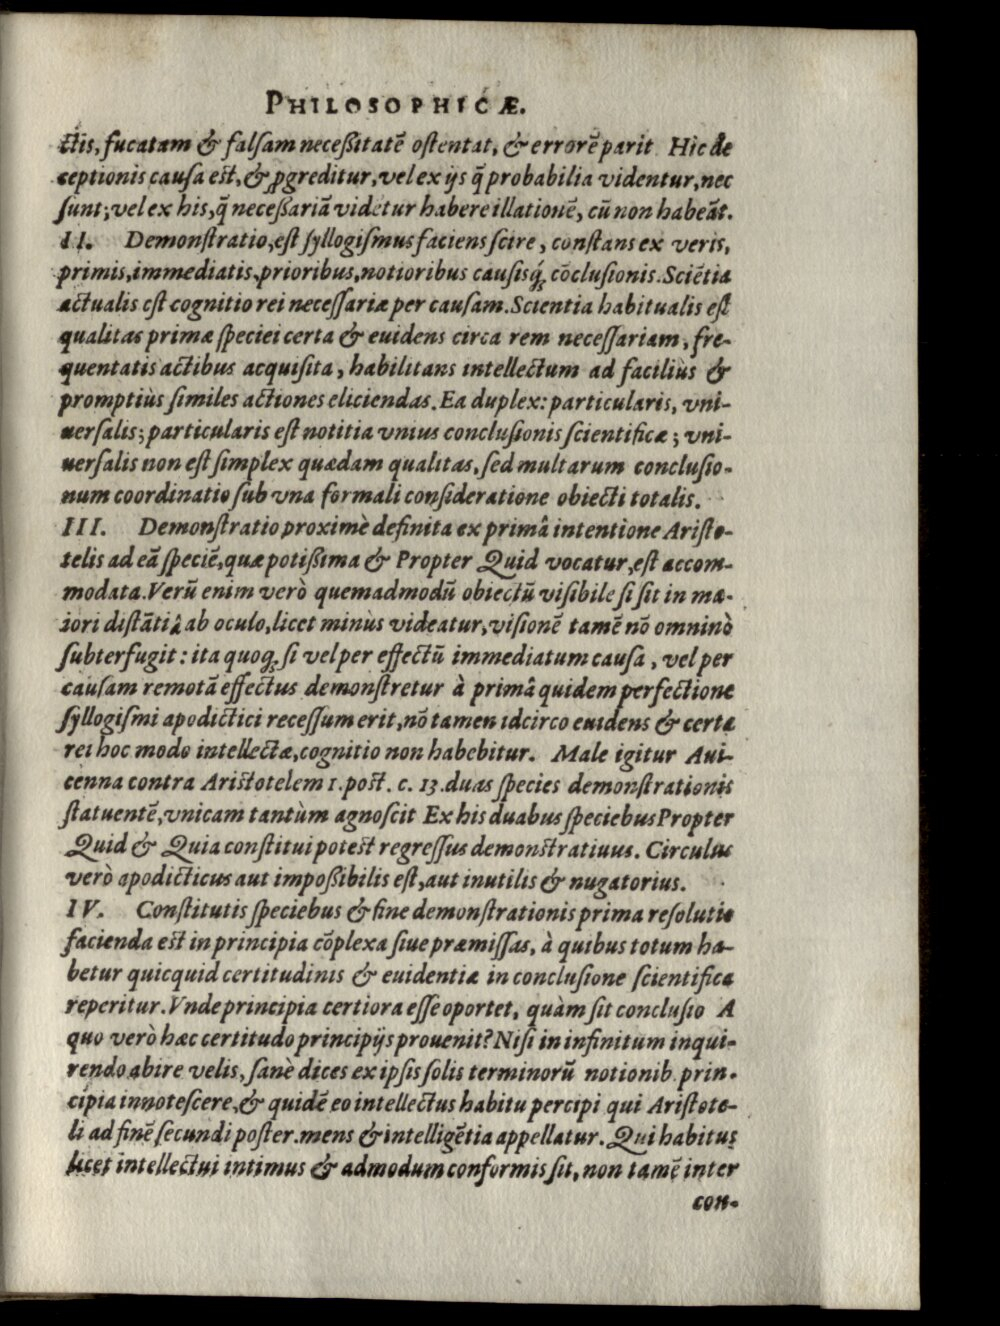 PHILOSOPHICÆ.
ctis, fucatam & falsam neceßitatẽ ostentat, & errorẽ parit Hic de
ceptionis causa est, & ꝓgreditur, vel ex ijs q̃ probabilia videntur, nec
sunt; vel ex his, q̃ neceßariã videtur habere illationẽ, cũ non habeãt.
II. Demonstratio, est syllogismus faciens scire, constans ex veris,
primis, immediatis, prioribus, notioribus causisq́; cõclusionis. Sciẽtia
actualis est cognitio rei necessariæ per causam. Scientia habitualis est
qualitas primæ speciei certa & euidens circa rem necessariam, fre-
quentatis actibus acquisita, habilitans intellectum ad faciliùs &
promptiùs similes actiones eliciendas. Ea duplex: particularis, vni-
uersalis; particularis est notitia vnius conclusionis scientificæ; vni-
uersalis non est simplex quædam qualitas, sed multarum conclusio-
num coordinatio sub vna formali consideratione obiecti totalis.
III. Demonstratio proximè definita ex primâ intentione Aristo-
telis ad eã speciẽ, quæ potißima & Propter Quid vocatur, est accom-
modata. Verũ enim verò quemadmodũ obiectũ visibile si sit in ma-
iori distãtiâ ab oculo, licet minùs videatur, visionẽ tamẽ nõ omninò
subterfugit: ita quoq; si vel per effectũ immediatum causa, vel per
causam remotã effectus demonstretur à primâ quidem perfectione
syllogismi apodictici recessum erit, nõ tamen idcirco euidens & certa
rei hoc modo intellectæ, cognitio non habebitur. Male igitur Aui-
cenna contra Aristotelem 1. post. c. 13. duas species demonstrationis
statuentẽ, vnicam tantùm agnoscit Ex his duabus speciebus Propter
Quid & Quia constitui potest regressus demonstratiuus. Circulus
verò apodicticus aut impoßibilis est, aut inutilis & nugatorius.
IV. Constitutis speciebus & fine demonstrationis prima resolutio
facienda est in principia cõplexa siue præmissas, à quibus totum ha-
betur quicquid certitudinis & euidentiæ in conclusione scientifica
reperitur. Vnde principia certiora esse oportet, quàm sit conclusio A
quo verò hæc certitudo principijs prouenit? Nisi in infinitum inqui-
rendo abire velis, sanè dices ex ipsis solis terminorũ notionib. prin-
cipia innotescere, & quidẽ eo intellectus habitu percipi qui Aristote-
li ad finẽ secundi poster. mens & intelligẽtia appellatur. Qui habitus
licet intellectui intimus & admodum conformis sit, non tamẽ inter
con-